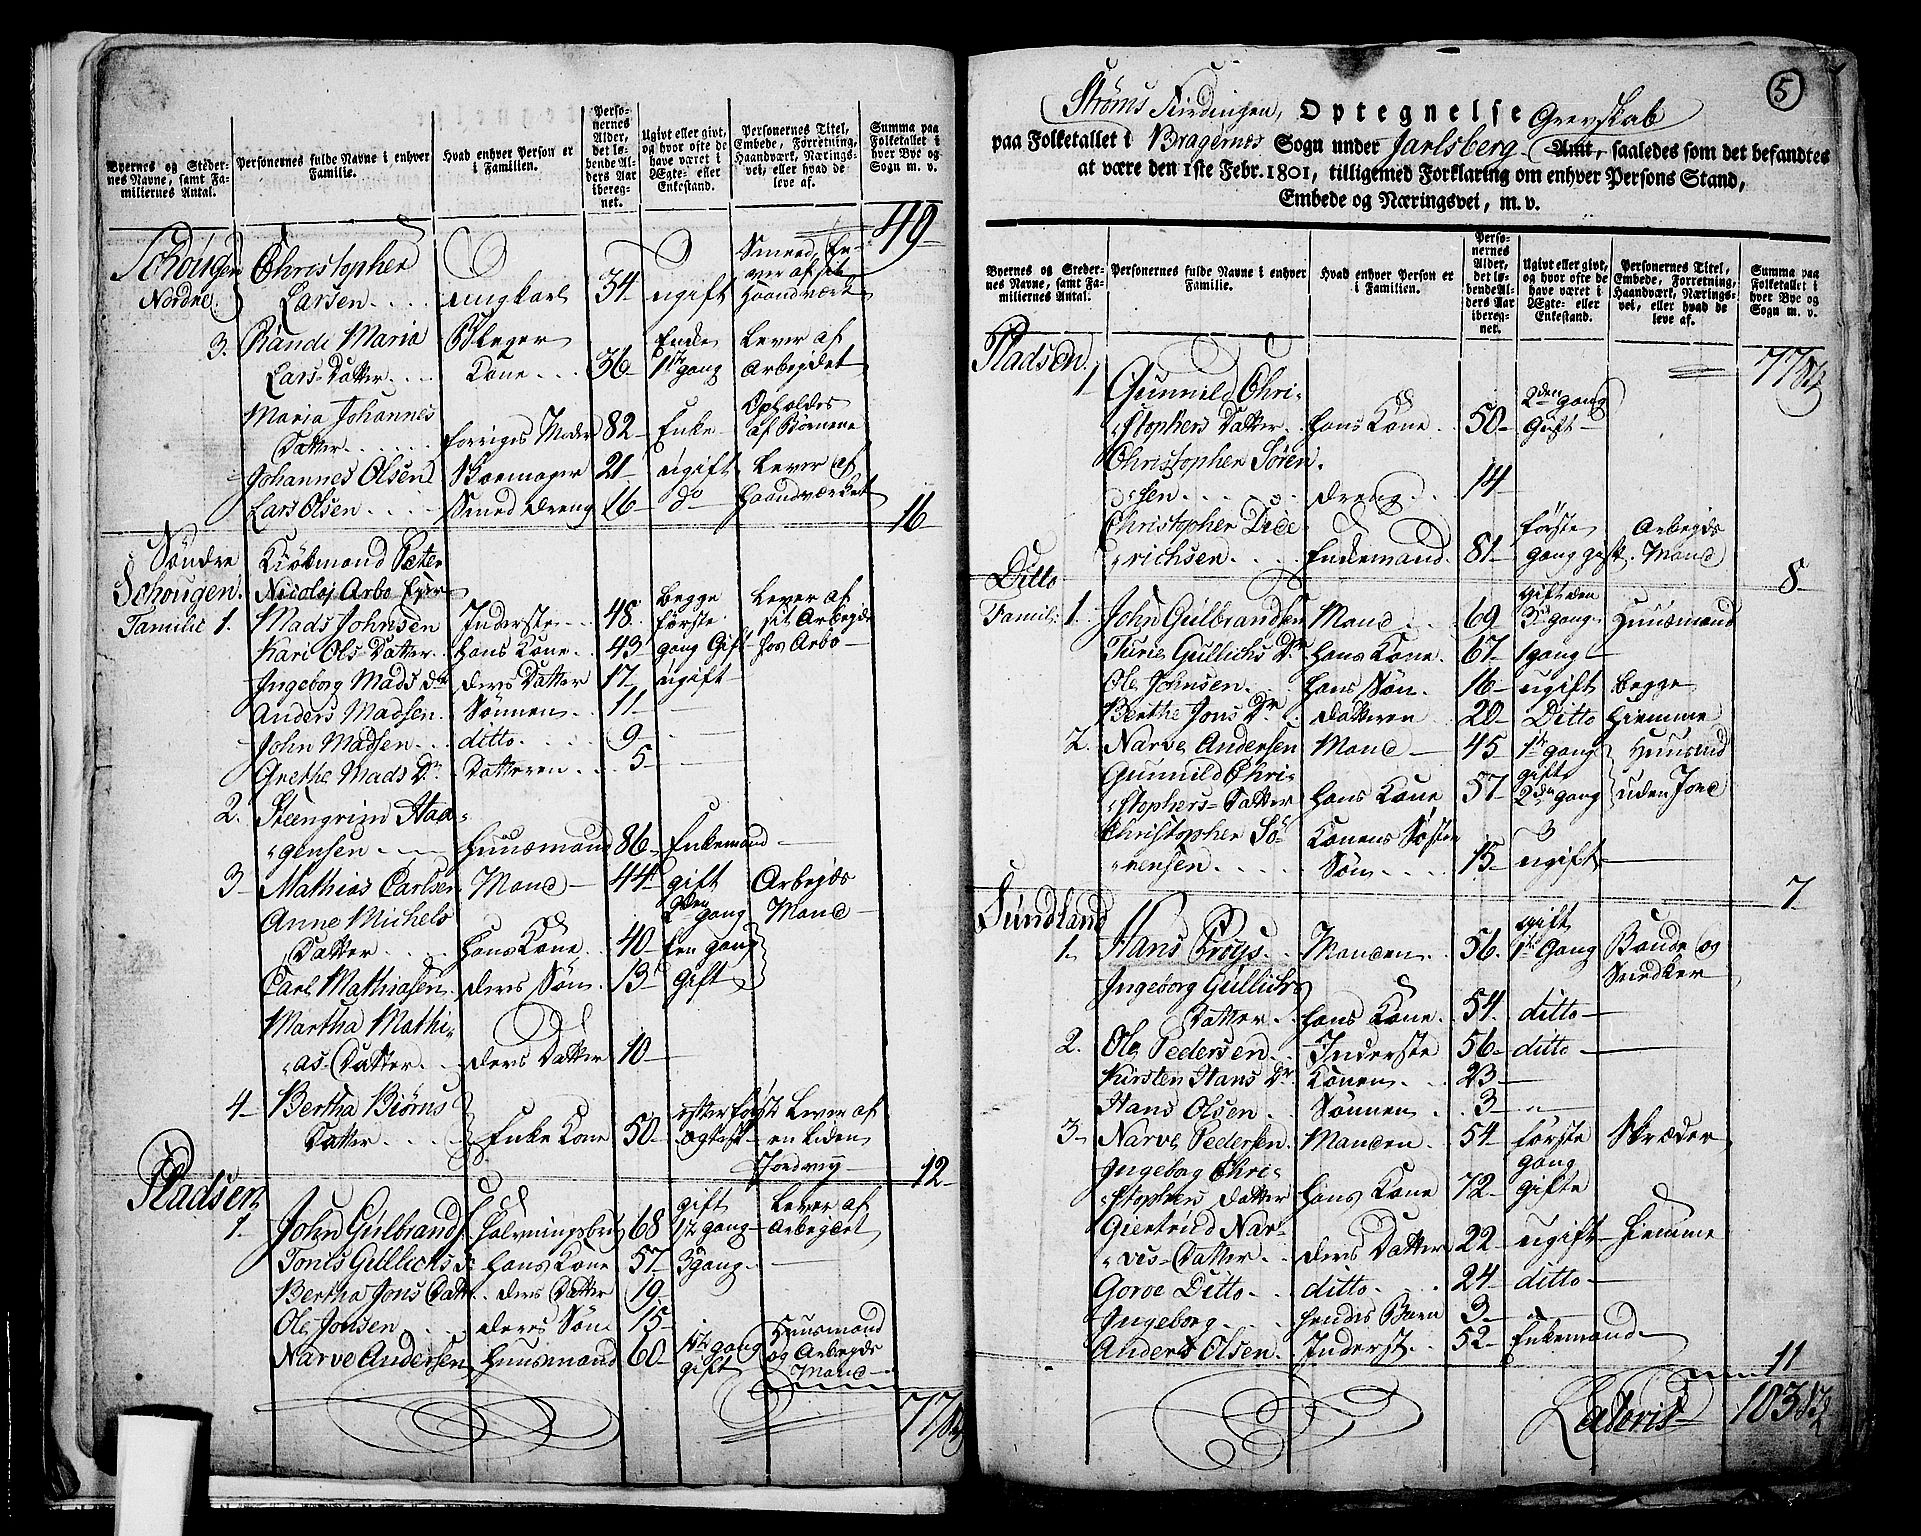 Byernes og Steder-
nes Navne, samt Fa-
miliernes Antal.
Personernes fulde Navne i enhver
Familie.
Hvad enhver Person er
i Familien.
Perso-
nernes
Alder,
det lø-
bende Al-
ders Aar
iberég-
net.
Ugivt eller givt,
og hvor ofte de
have været i
Ægte- eller
Enkestand.
Personernes Titel,
Embede, Forretning,
Haandværk, Nærings-
vei, eller hvad de
leve af.
Summa paa
Folketallet i
hver Bye og
Sogn m. v.
49
Schougen Christopher Smeed
Nordre Larsen ungkarl 34 ugift Haandværk
3. Rande Maria Enke Lever af
Lars Datter Kone 36 1ste gang Arbejdet
Maria Johannes Opholdes
Datter forriges Moder 82 Enke af Børnene
Johannes Olsen Skoemager 21 ugift Lever af
Lars Olsen Smed dreng 16 do Haandværket
16
Søndre Kiøbmand Peter
Schougen. Nicolaj Arbo Ejer begge Lever af
Familie 1. Mads Johnsen Inderste 48 første sit Arbejde
Kari Ols Datter hans Kone 43 gang Gift hos Arbo
Ingeborg Mads dr ders Datter 17 ugift
Anders Madsen Sønnen 11
John Madsen ditto 9
Grethe Mads Dr Datteren 5
2. Steengrim Haa-
gensen Huusmand 86 Enkemand
3 Mathias Carlsen Mand 44 gift Arbejds
Anne Michels 2den gang Mand
Datter hans Kone 40 een gang
Carl Mathiasen ders Søn 13 Gift
Martha Mathi-
as Datter ders Datter 10
4 Bertha Biørns Lever af
Datter Enke Kone 50 en liden
Jordvej
12
Pladsen gift Lever af
1. John Gulbrands 68 1ste gang Arbejdet
Tonis Gullichs d: hans Kone 57 3 gang
Bertha Jons Datt ders Datter 19
Ole Jonsen deres Søn 15 Huusmand
Narve Andersen Huusmand 60 1ste gang og Arbejds
gift Mand
77
5
Strøms Fierdingen, Optegnelse Grevskab
paa Folketallet i Bragernes Sogn under Jarlsberg Amt, saaledes som det befandtes
at være den 1ste Febr. 1801, tilligemed Forklaring om enhver Persons Stand,
Embede og Næringsvei, m. v.
Byernes og Steder-
nes Navne, samt Fa-
miliernes Antal.
Personernes fulde Navne i enhver
Familie.
Hvad enhver Person er
i Familien.
Perso-
nernes
Alder,
det lø-
bende Al-
ders Aar
ibereg-
net.
Ugivt eller givt,
og hvor ofte de
have været i
Ægte- eller
Enkestand.
Personernes Titel,
Embede, Forretning,
Haandværk, Nærings-
vei, eller hvad de
leve af.
Summa paa
Folketallet i
hver Bye og
Sogn m. v.
Pladsen 77
1 Gunnild Chri- 2den gang
stophers Datter hans Kone 50 Gift
Christopher Søren-
sen dreng 14
Christopher Dide første Arbejds
richsen Enkemand 81 gang gift Mand
8
Ditto gift den
Famil: 1. John Gulbrandsen Mand 69 3die gang Huusmand
Turie Gullichs Dr hans Kone 67 1 gang
Ole Johnsen hans Søn 16 ugift begge
Berthe Jons Dr datteren 20 Ditto hiemme
2. Narve Andersen Mand 45 1ste gang Huusmd
Gunnild Chri- gift
stophers Datter hans Kone 57 2den gang uden Jord
Christopher Sø- Konens Søster
rensen Søn 15 ugift
7
Sundland gift
1. Hans Froys Manden 56 1ste Gang Bonde og
Ingeborg Gullichs Snedker
Datter hans Kone 54 ditto
2. Ole Pedersen Inderste 56 ditto
Kirsten Hans Dr Konen 23
Hans Olsen Sønnen 3
3 Narve Pedersen Manden 54 første Skræder
Ingeborg Chri- gang
stophers datter hans Kone 72 gifte
Giertrud Nar-
ves Datter ders Datter 22 ugift hiemme
Goroe Ditto ditto 24 ditto
Ingeborg hendes Barn 3
Anders Olsen Inderst 52 Enkemand
11
Lateris 103